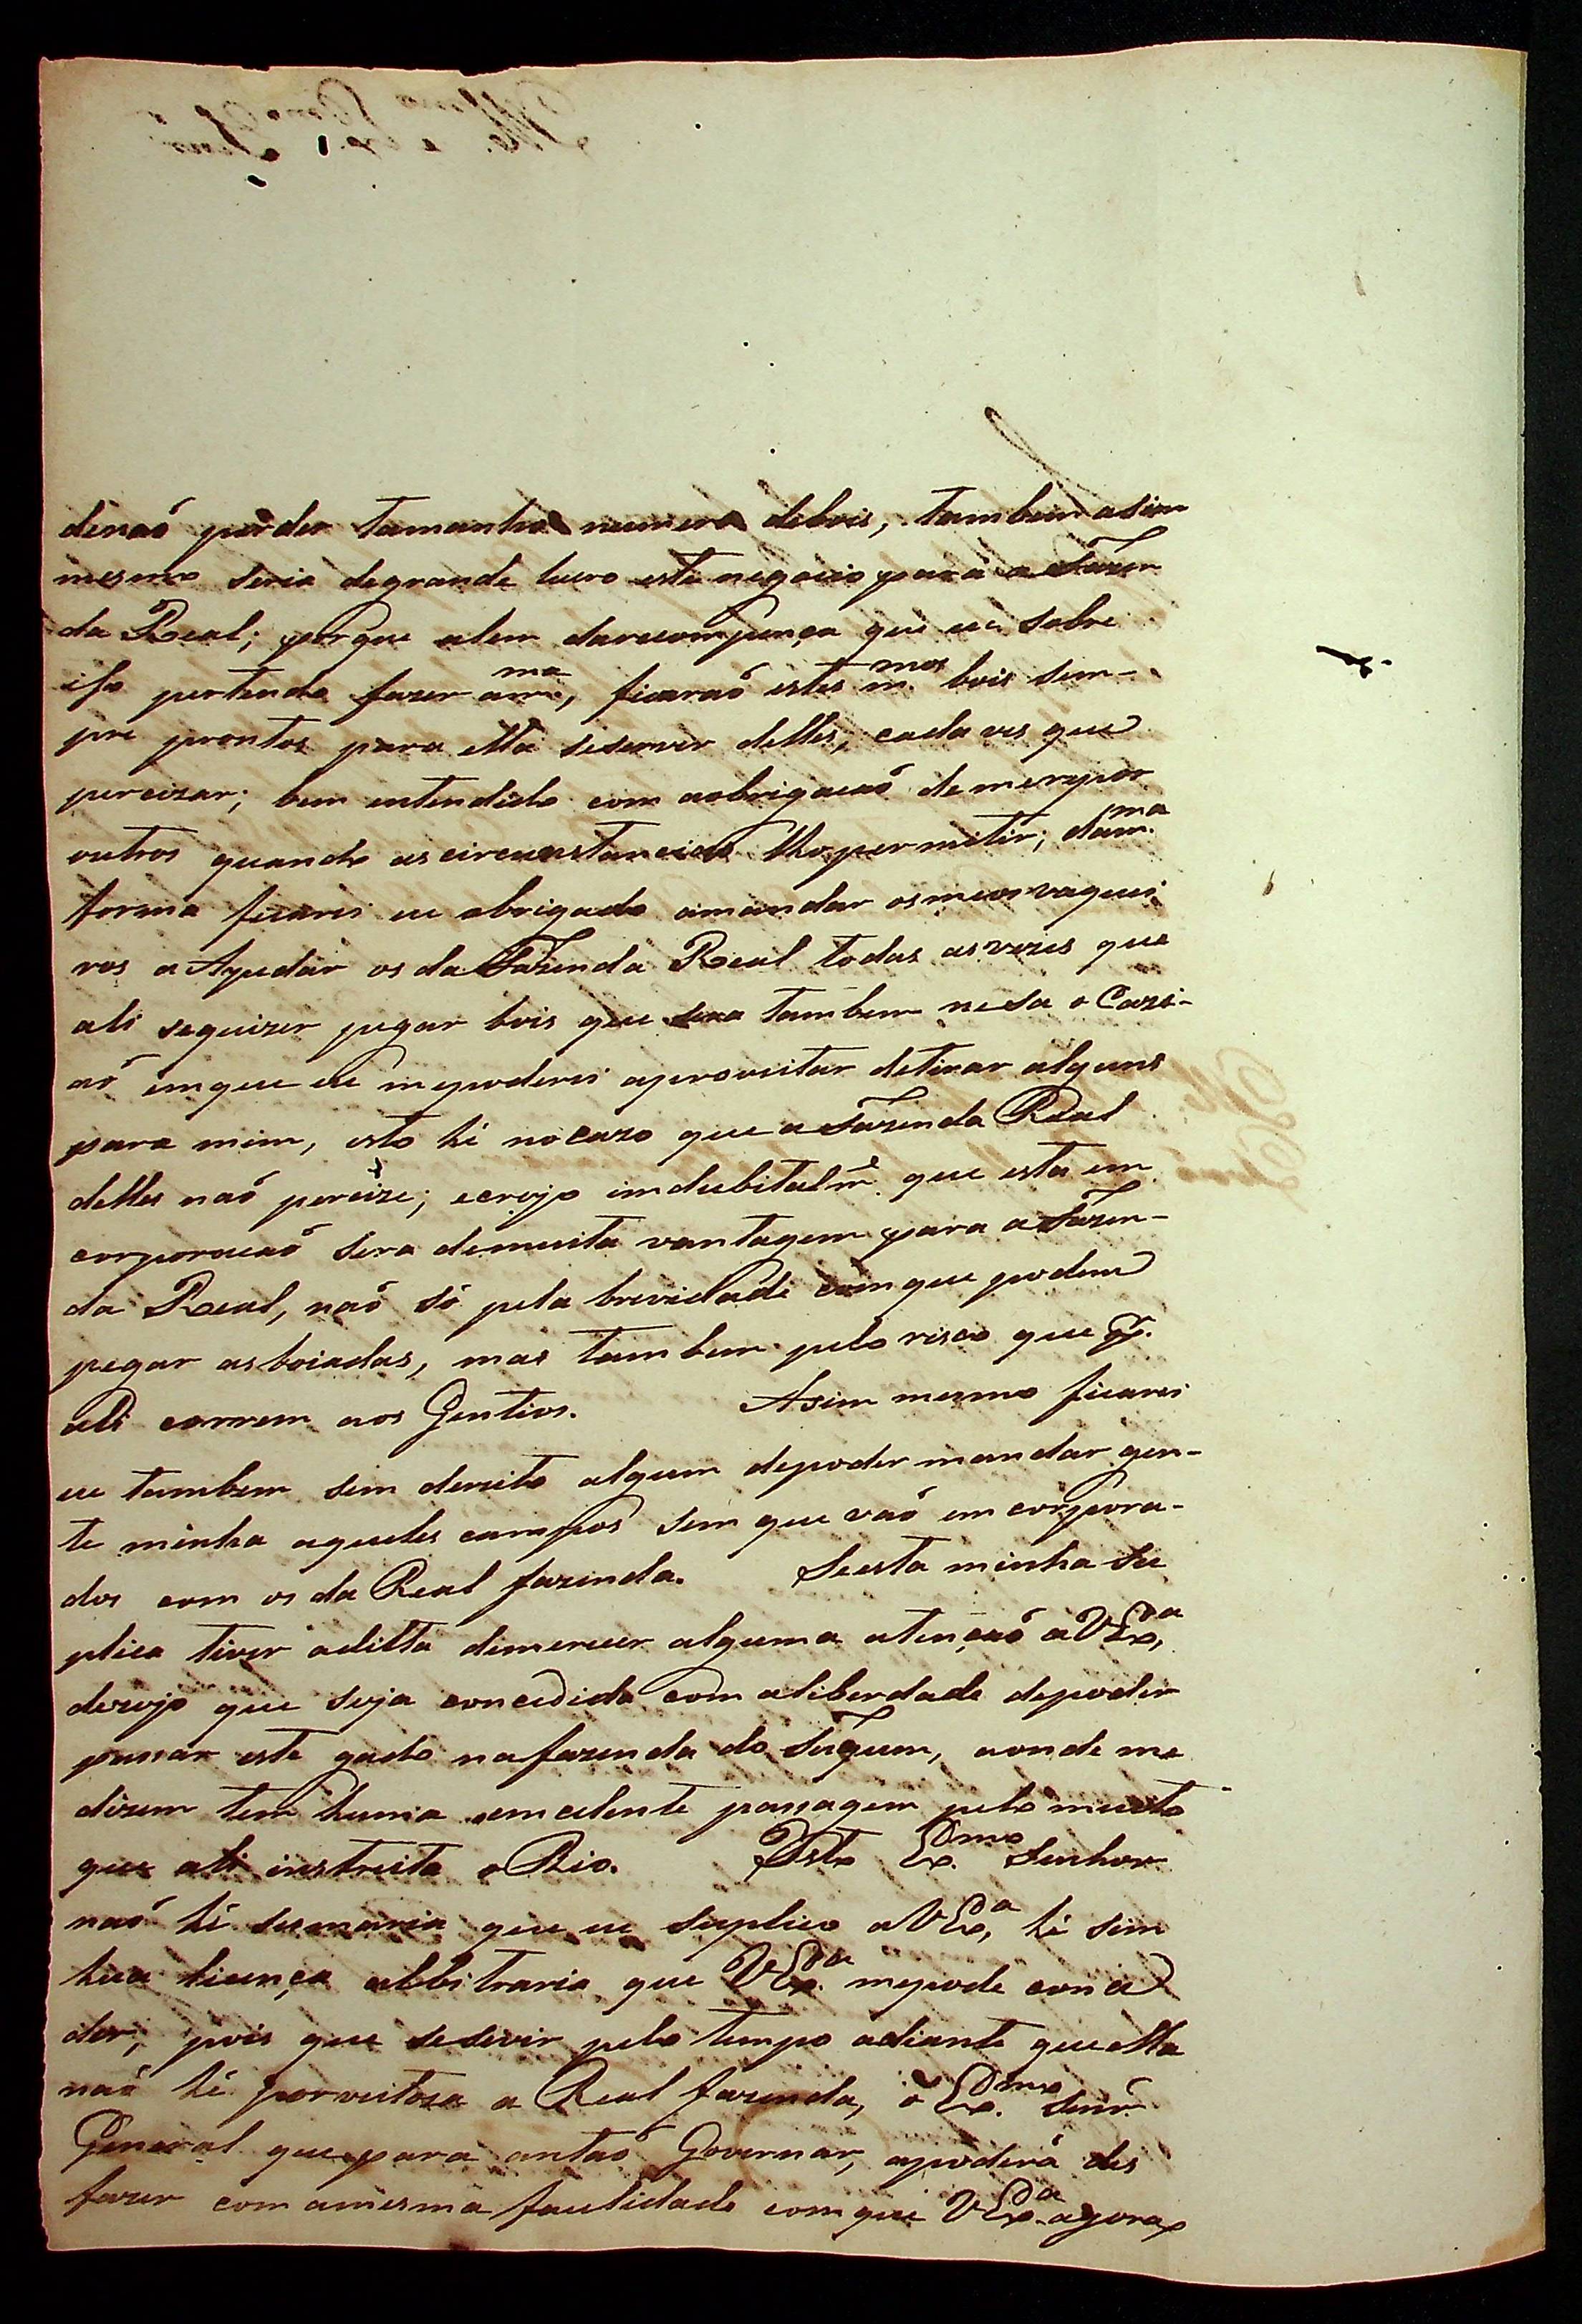 denaó perder tamanho numero debois, tambem asim
mesmo seria degrande lucro este negocio para a Fazen
da Real; porque alem darecompença que eu sobre
iso pertendo fazer am.ᵐᵃ, ficaraó estes m.ᵐᵒˢ bois sem-
pre prontos para ella seservir delles, cada ves que
percizar; bem entendido com aobrigacaó de merepor
outros quando as circunstancias lho permitir; dam.ᵐᵃ
forma ficarei eu obrigado amandar osmeos vaquei
ros a Ajudar os da Fazenda Real todas asvezes que
ali sequizer pegar bois que sera tambem nesa o Cazi-
aó emque eu mepoderei aproveitar detirar alguns
para mim, isto hé nocazo que a Fazenda Real
delles naó percize; ecrejo indubitalm.ᵉ que esta em
corporacaó sera demuita vantagem para a Fazen-
da Real, naó só pela brevidade comque podem
pegar asboiadas, mas tambem pelo risco que p.ʳ
ali correm aos Gentios. Asim mesmo ficarei
eu tambem sem dereito algum depoder mandar gen-
te minha aqueles campos sem que vaó emcorpora-
dos com os da Real fazenda. Seesta minha Su
plica tiver adita dimerecer alguma atençaó aVEx.ᵃ,
dezejo que seja concedida com aliberdade depoder
pasar este gado nafazenda do, aonde me
dizem tem huma emcelente passagem pelo muito
que ali instreita o Rio. Isto Ex.ᵐᵒ Senhor
naó hé sesmaria que eu suplico aVEx.ᵃ, hé sim
hua licença albitraria que VEx.ᵃ mepode conce
der, pois que sesevir pelo tempo adiante que ella
naó hé porveitoza a Real fazenda, o Ex.ᵐᵒ Senr.
General que para antaó Governar, apoderá des
fazer com amesma facilidade com que VEx.ᵃ agora